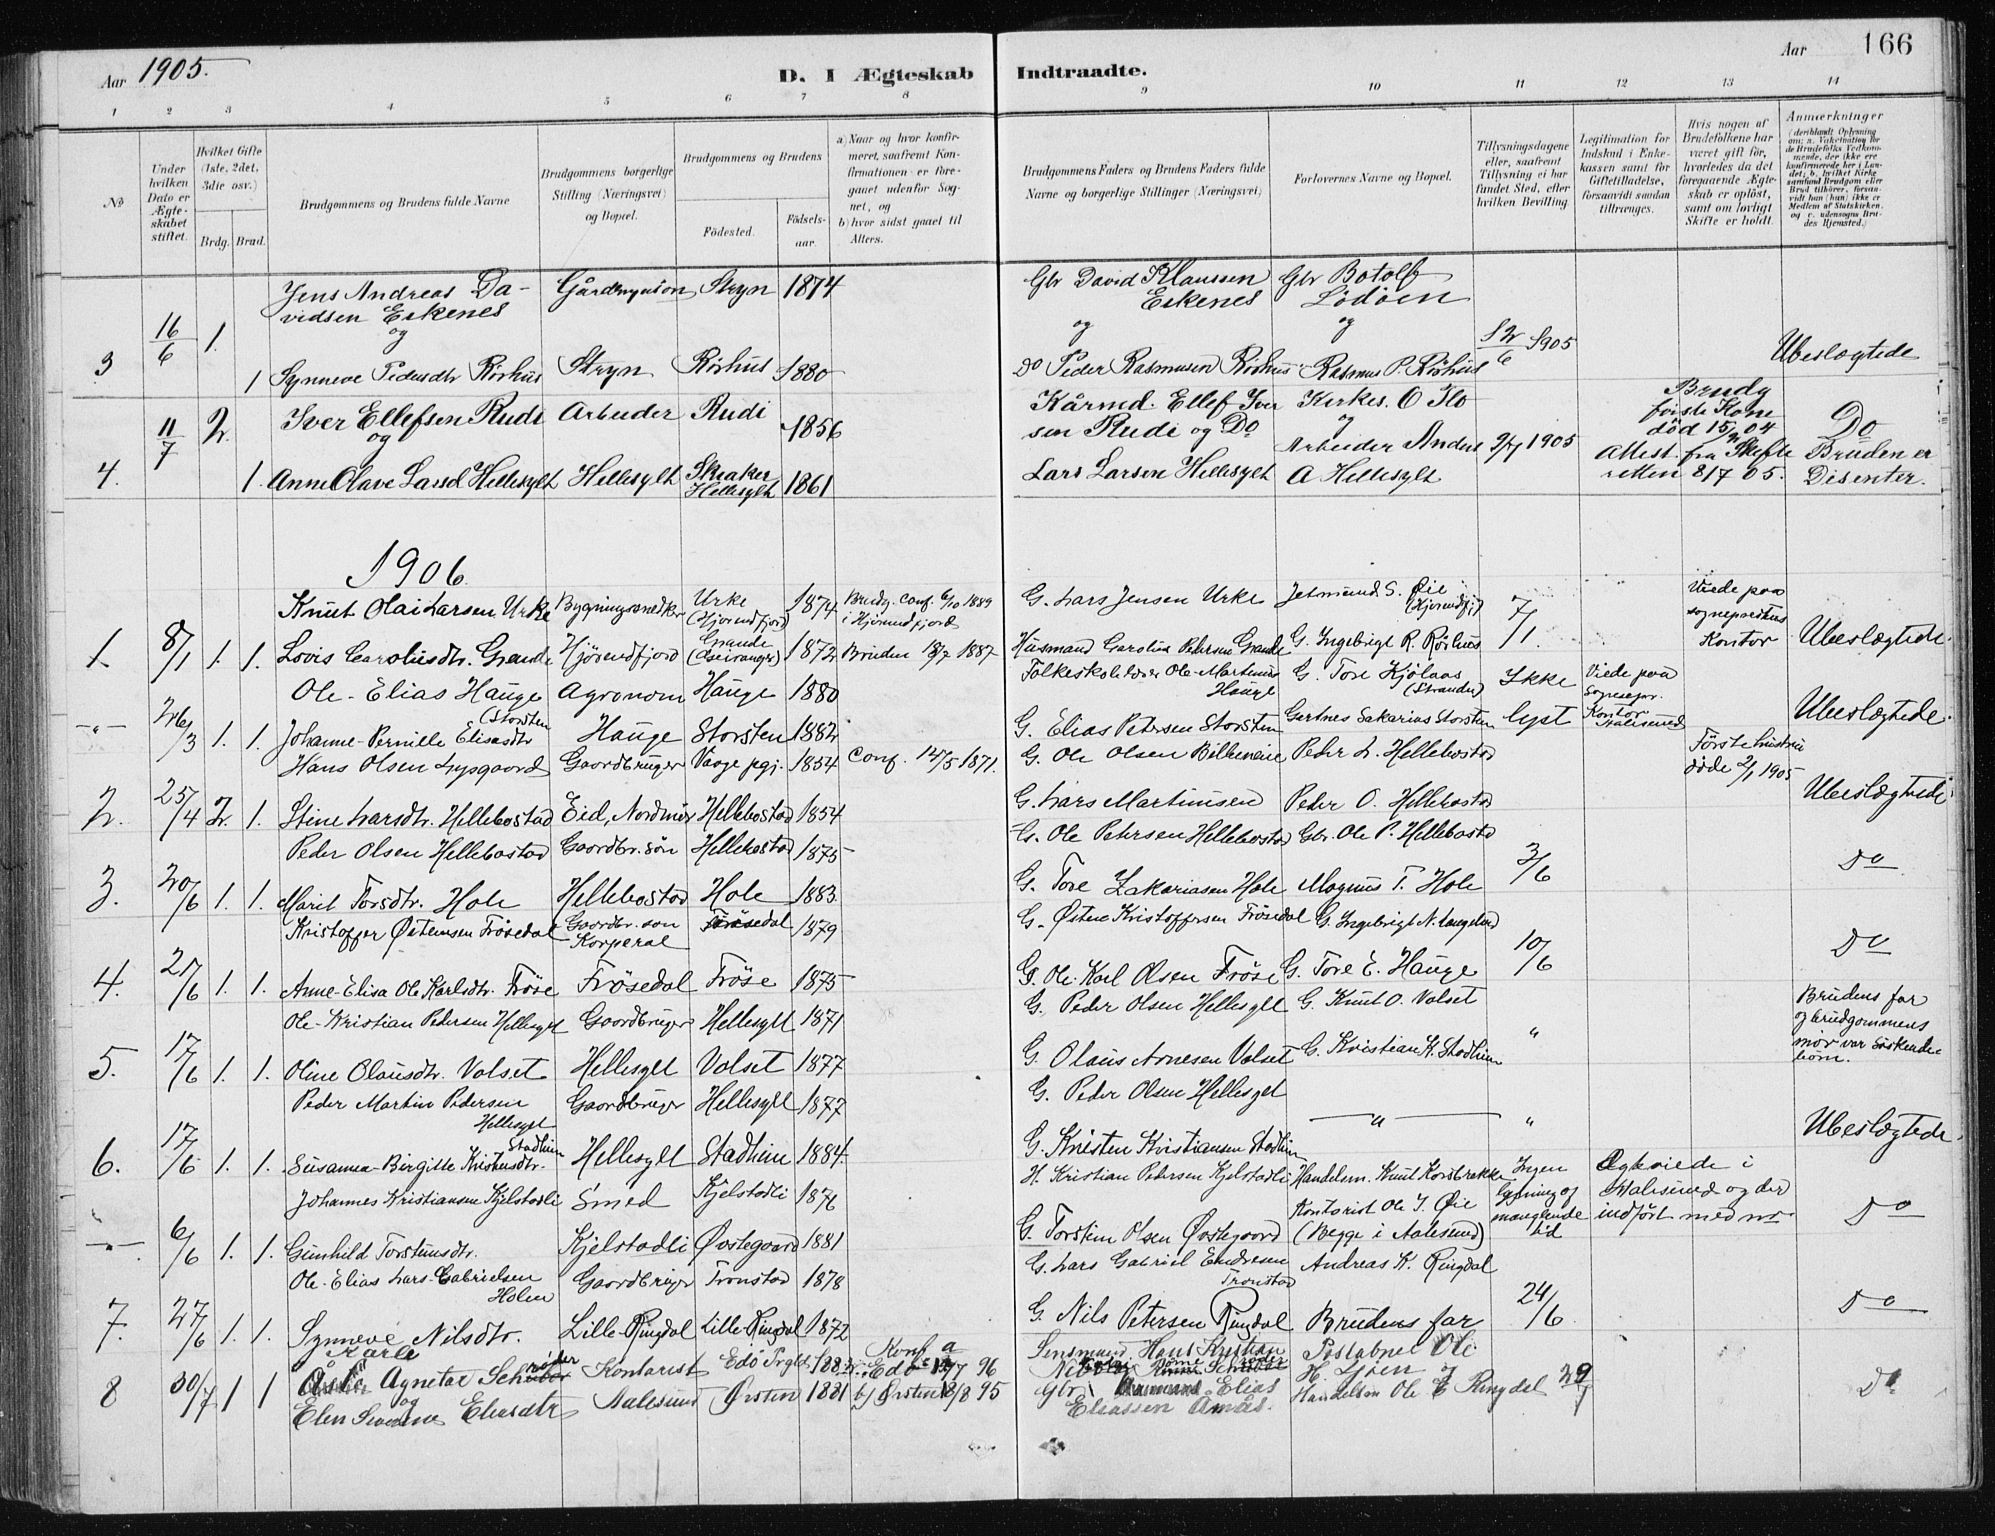 Aar 1905.
D. I Ægteskab Indtraadte.
Aar 166
1 2 3 4 5 6 7 8 9 10 11 12 13 14
No
Under hvilken Dato er Ægteskabet stiftet.
Hvilket Gifte (1ste, 2det, 3die osv.)
Brdg. Brud.
Brudgommens og Brudens fulde Navne
Brudgommens borgerlige Stilling (Næringsvei) og Bopæl.
Brudgommens og Brudens
Fødested.
Fødselsaar.
a) Naar og hvor konfirmeret, saafremt Konfirmationen er foregaaet udenfor Sognet, og
b) hvor sidst gaaet til Alters.
Brudgommens Faders og Brudens Faders fulde Navne og borgerlige Stillinger (Næringsvei)
Forlovernes Navne og Bopæl.
Tillysningsdagene eller, saafremt Tillysning ei har fundet Sted, efter hvilken Bevilling
Legitimation for Indskud i Enkekassen samt for Giftetilladelse, forsaavidt saadan tiltrænges.
Hvis nogen af Brudefolkene har været gift før, hvorledes da det foregaaende Ægteskab er opløst, samt om lovligt Skifte er holdt.
Anmærkninger
(deriblandt Oplysning om: a. Vakcination for de Brudefolks Vedkommende, der ikke ere konfirmerede her i Landet; b. hvilket Kirkesamfund Brudgom eller Brud tilhører, forsaavidt han (hun) ikke er Medlem af Statskirken, og c. udensogns Brudes Hjemsted.)
Jens Andreas Da- Stryn 1874 Gbr David Klaussen Gbr Botolf
vidsen Eskenes Eskenes Lødøen
16/6 1. og og og 12/6 1905
3 1 Synneve Pedersdtr Rørhus Stryn Rørhus 1880 Do Peder Rasmusen Rørhus Rasmus P. Rørhus Ubeslægtede
11/7 2. Iver Ellefsen Rudi Arbeider Rudi 1856 Kårmd. Ellef Iver Kirkes. O Flo Brudg første Kone
og sen Rudi og Do og død 04 Do
Arbeider Anders 2/7 1905 attest. fra Skifte Bruden er
4. 1. Anne Olave Larsd Hellesylt Hellesylt Skeaker Hellesylt 1861 Lars Larsen Hellesylt A Hellesylt retten 8/7 05. Disenter.
1906.
Knut Olai Larsen Urke Bygningssnedker Urke (Hjørundfjord) 1874 Brudg. conf. 6/10 1889 i Hjørundfjord G. Lars Jensen Urke Jetmund S. Øie (Hjørundfj) 7/1 Viede paa sogneprestens Kontor
1. 8/1 1. 1. Lovis Carolusdtr. Grande Hjørundfjord Grande (Geiranger) 1872 Bruden 18/7 1887 Husmand Carolus Petersen Grande G. Ingebrigt R. Rørhus Ubeslægtede.
Ole-Elias Hauge Agronom Hauge 1880 Folkeskolelærer Ole-Martinus Hauge G. Tore Kjølaas (Stranden) Ikke Viede paa Sognepr. Kontor Aalesund
-"- 26/3 1. 1. Johanne-Pernille Eliasdtr (Storsten Hauge Storsten 1882 G. Elias Petersen Storsten Gertnes Sakarias Storsten lyst Ubeslægtede.
Hans Olsen Lysgaard Gaardbruger Vaage pgj. 1854 Conf. 14/5 1871. G. Ole Olsen Peder L. Hellebostad Første hustru døde 2/1 1905
2. 25/4 2. 1. Stine Larsdtr. Hellebostad Eid, Nordmør Hellebostad 1854 G. Lars Martinusen Peder O. Hellebostad Ubeslægtede.
Peder Olsen Hellebostad Gaardbr. søn Hellebostad 1875 G. Ole Petersen Hellebostad Gbr. Ole P. Hellebostad 3/6
3. 20/6 1. 1. Marit Torsdtr. Hole Hellebostad Hole 1883 G. Tore Zakariasen Hole Magnus T. Hole Do
Kristoffer Østensen Frøsedal Gaardbr. søn Korperal Frøsedal 1879 G. Østen Kristoffersen Frøsedal G. Ingebrigt N. Langeland 10/6
4. 21/6 1. 1. Anne-Elisa Ole Karlsdtr. Frøse Frøsedal Frøse 1875 G. Ole-Karl Olsen Frøse G. Tore E. Hauge Do
Ole-Kristian Pedersen Hellesylt Gaardbruger Hellesylt 1871 G. Peder Olsen Hellesylt G. Knut O. Valset " Brudens far og brudgommens mor var søskendebørn.
5. 17/6 1. 1. Oline Olausdtr. Valset Hellesylt Valset 1877 G. Olaus Arnesen Valset G. Kristian K. Stadheim
Peder Martin Pedersen Hellesylt Gaardbruger Hellesylt 1877 G. Peder Olsen Hellesylt " "
6. 17/6 1. 1. Susanna-Birgitte Kristensdtr. Stadheim Hellesylt Stadheim 1884. G. Kristen Kristiansen Stadheim Ubeslægtede.
Johannes Kristiansen Kjelstadli Smed Kjelstadli 1876 H. Kristian Pedersen Kjelstadli Handelsm. Knut Korsbrekke Ingen lysning af manglende tid Ogsaa viede i Aalesund og der indført med no
-"- 6/6 1. 1. Gunhild Torstensdtr. Kjelstadli Øvstegaard 1881 G. Torsten Olsen Øvstegaard Kontorist Ole J. Øie (Begge i Aalesund) Do
Ole-Elias Lars-Gabrielsen Holen Gaardbruger Tronstad 1878 G. Lars Gabriel Endresen Tronstad Andreas K. Ringdal 24/6
7. 27/6 1. 1. Synneve Nilsdtr. Lille-Ringdal Lille-Ringdal 1872 G. Nils Petersen Ringdal Brudens far Do
Karle Agnetar Schrøder Kontorist Edø Prgld. 1882 Konf a Edø 7 96 Hans Kristian Postabner Ole H. Ljøen og
8 30/7 1 1 og Elen Severine Eliasdtr Aalesund Ørsten 1881 b) Ørsten 18/8 95 Gbr. Elias Eliassen Amås. Handelsm Ole E Ringdal 29/7 Do